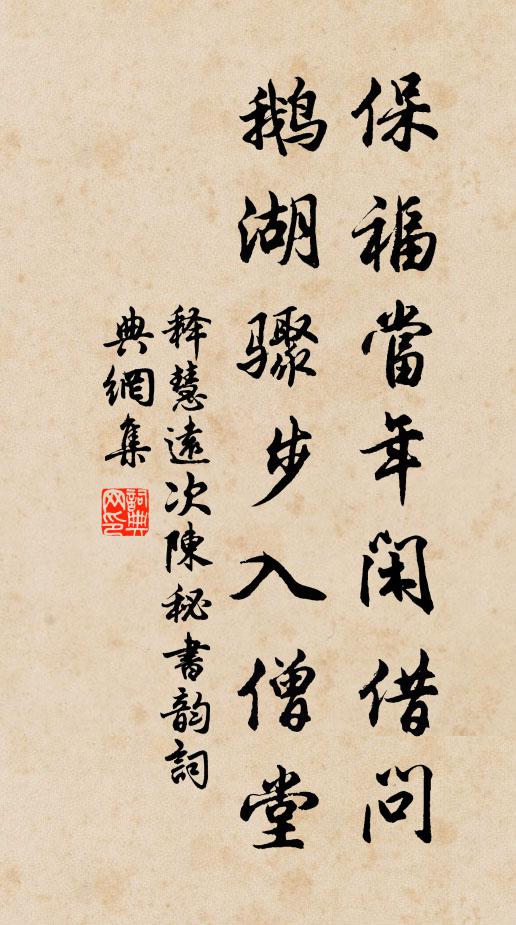 保福當年閑借問
鵝湖驟步入僧堂
释慧遠次陳秘書韵詞
典網集
詞典
网印